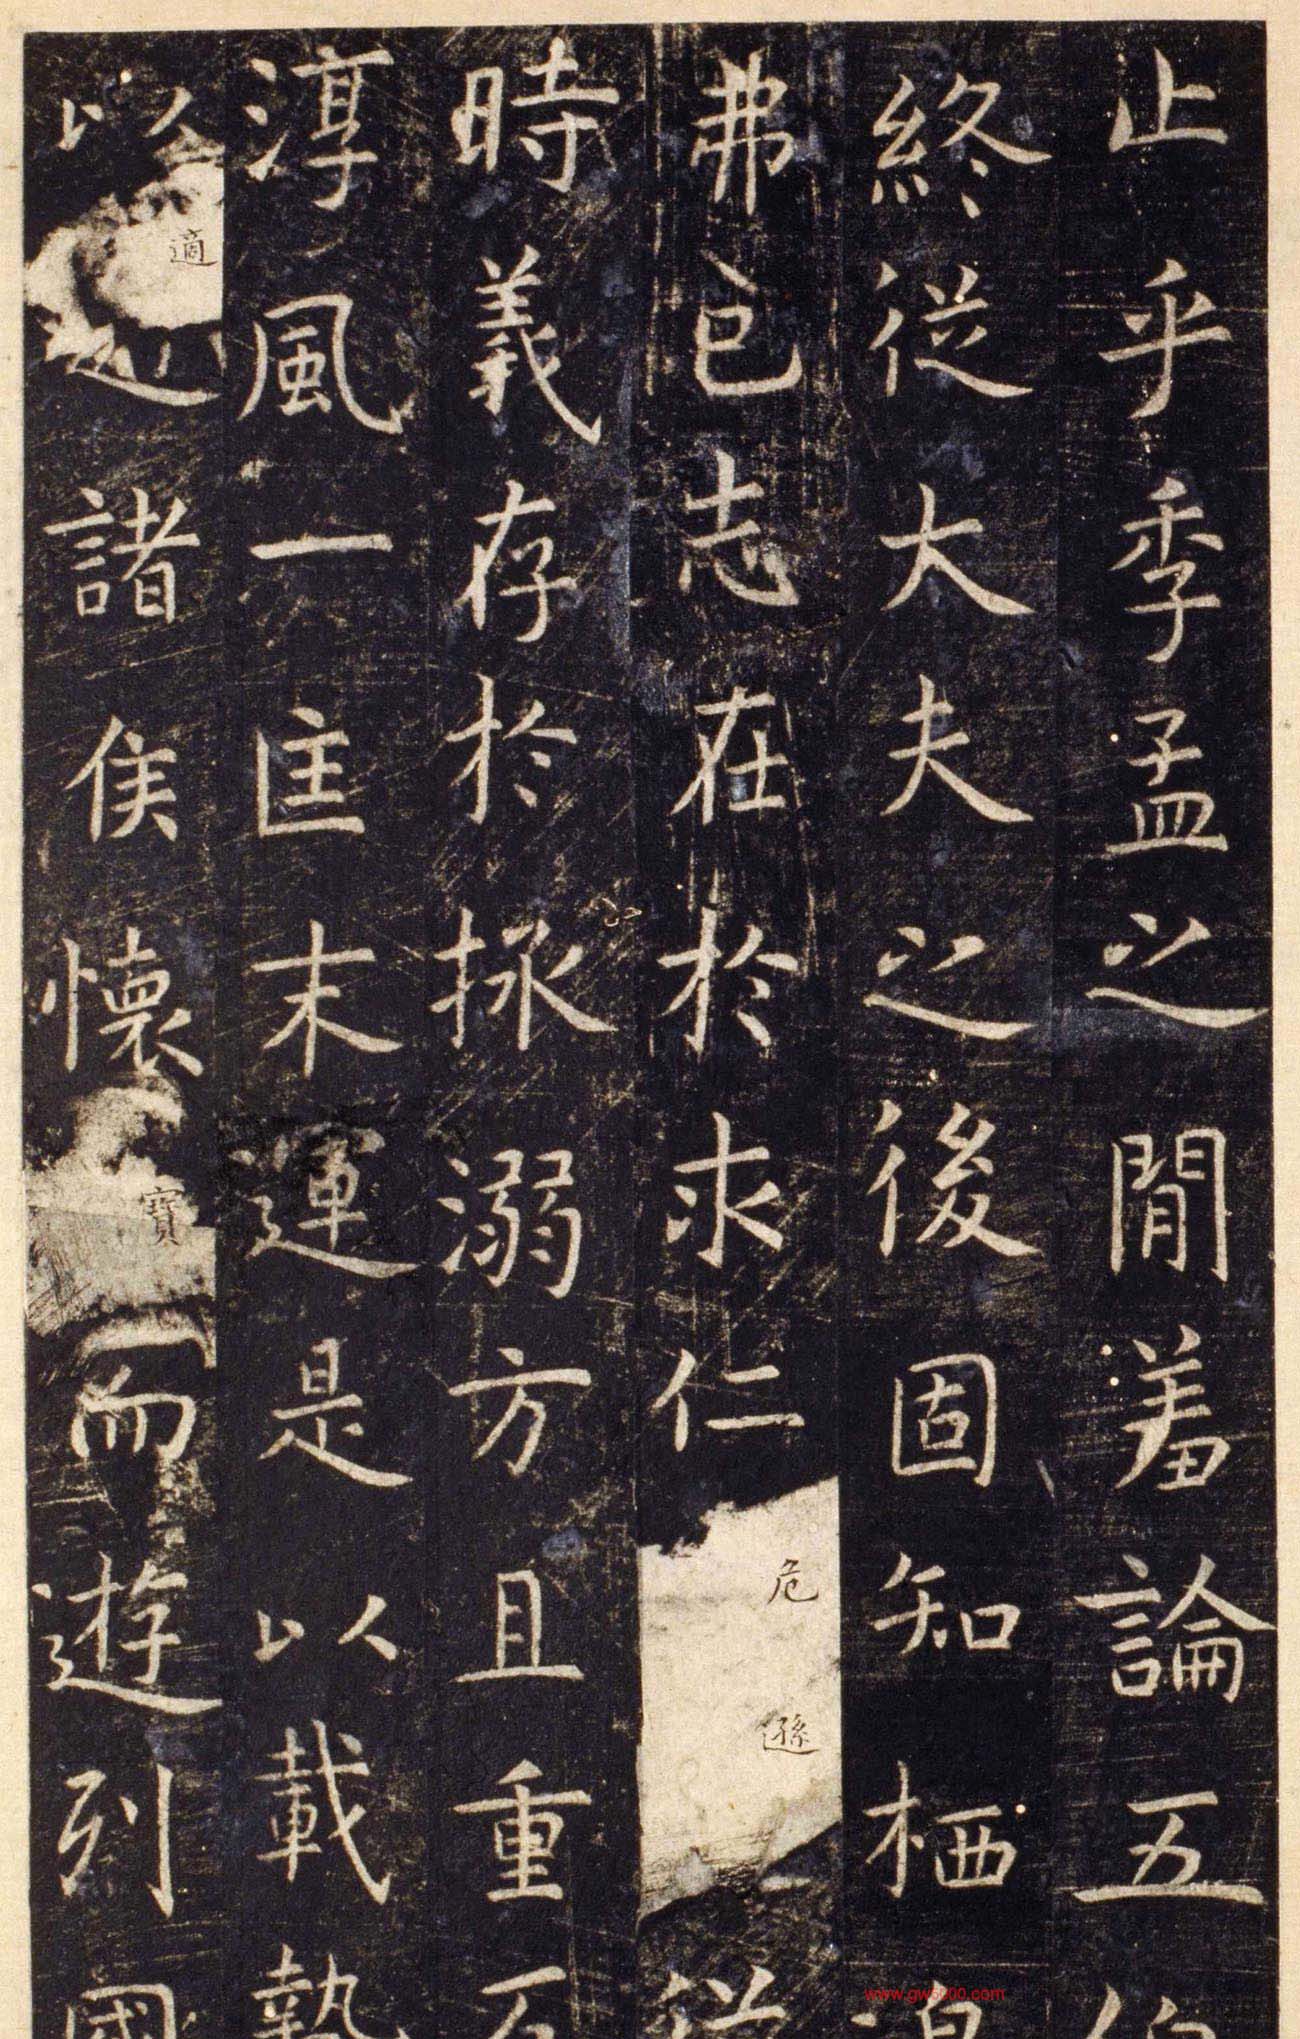 止乎季孟之閒羞論五
終從大夫之後固知栖
弗已志在於求仁危遜
時義存於拯溺方且重
淳風一匡末運是以載贄
以適諸侯懷寶而遊列國
www.gw6000.com